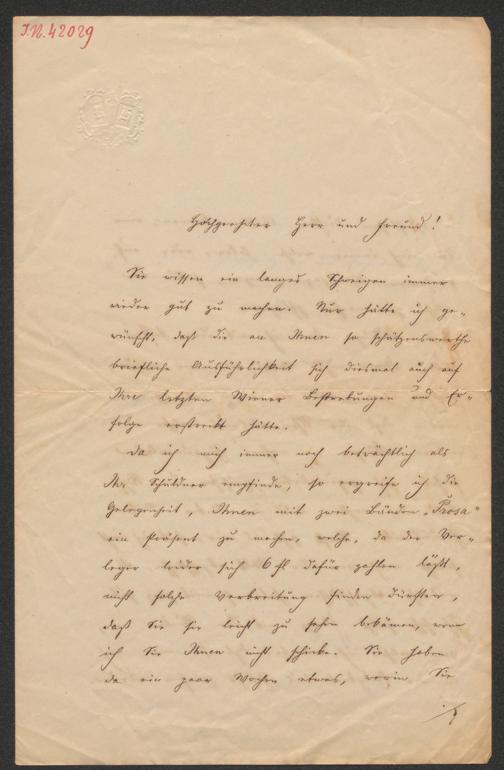 I.N. 42029
Hochgeehrter Herr und Freund!
Sie wissen ein langes Schweigen immer
wieder gut zu machen. Nur hätte ich ge-
wünscht, daß die an Ihnen so schätzenswerthe
briefliche Ausführlichkeit sich diesmal auch auf
Ihre letzten Wiener Bestrebungen und Er-
folge erstreckt hätte.
Da ich mich immer noch beträchtlich als
Ihr Schuldner empfinde, so ergreife ich die
Gelegenheit, Ihnen mit zwei Bänden „Prosa"
ein Präsent zu machen, welche, da der Ver-
leger leider sich 6 fl dafür zahlen läßt,
nicht solche Verbreitung finden dürften,
daß Sie sie leicht zu sehen bekämen, wenn
ich Sie Ihnen nicht schicke. Sie haben
da ein paar Wochen etwas, worin Sie